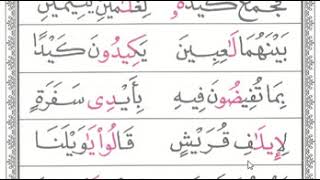 فَجَمَعَ كَيْدَهُۥ لِغُلَٰمَيْنِ يَتِيمَيْنِ
بَيْنَهُمَا لَٰعِبِينَ يَكِيدُونَ كَيْدًا
بِمَا تُفِيضُونَ فِيهِ بِأَيْدِى سَفَرَةٍ
لِإِيلَٰفِ قُرَيْشٍ قَالُوا۟ يَٰوَيْلَنَا